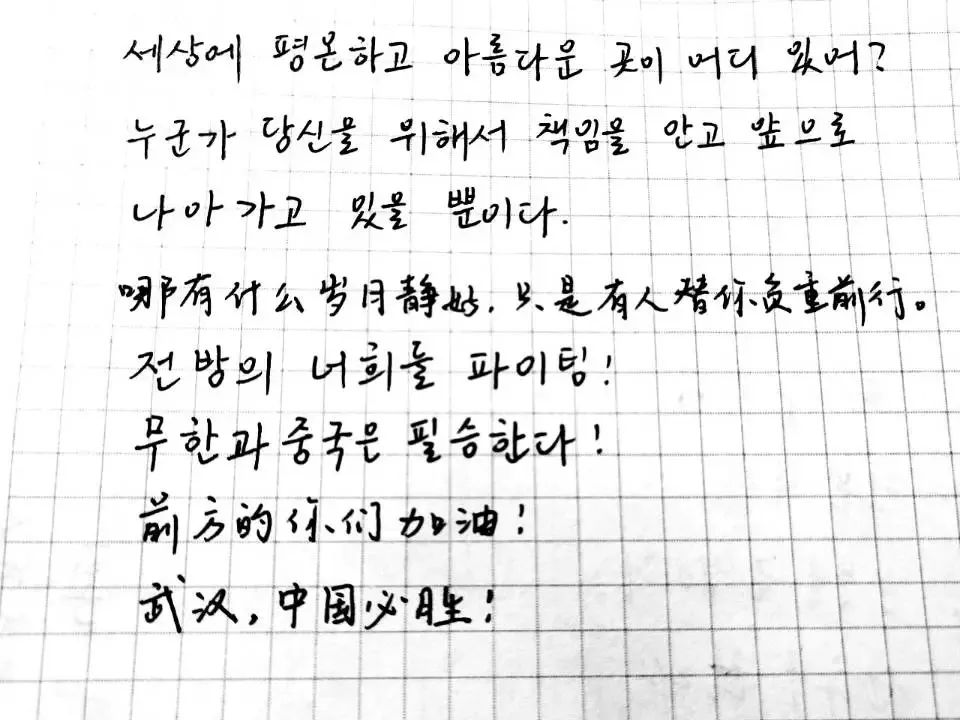 세상에 평온하고 아름다운 곳이 어디 있어?
누군가 당신을 위해서 책임을 안고 앞으로
나아가고 있을 뿐이다.
哪有什么岁月静好，只是有人替你负重前行。
전방의 너희들 파이팅!
무한과 중국은 필승한다!
前方的你们加油！
武汉，中国必胜！